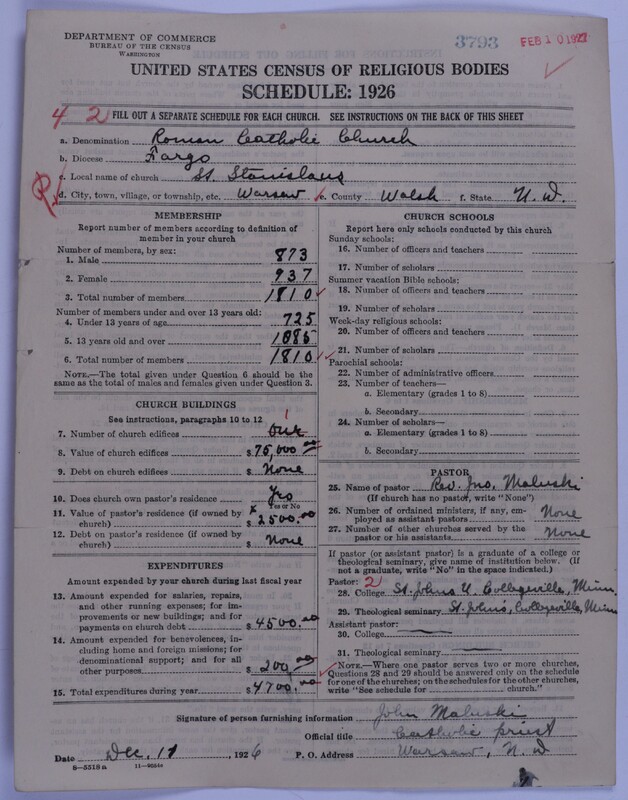 DEPARTMENT OF COMMERCE
BUREAU OF THE CENSUS
WASHINGTON
3793
FEB 10 1927
UNITED STATES CENSUS OF RELIGIOUS BODIES
SCHEDULE: 1926
4 2 FILL OUT A SEPARATE SCHEDULE FOR EACH CHURCH. SEE INSTRUCTIONS ON THE BACK OF THIS SHEET
a. Denomination Roman Catholic Church
b. Diocese Fargo
c. Local name of church St. Stanislaus
d. City, town, village, or township, etc. Warsaw e. County Walsh f. State N. D.
MEMBERSHIP
Report number of members according to definition of
member in your church
Number of members, by sex:
1. Male 873
2. Female 937
3. Total number of members 1810
Number of members under and over 13 years old:
4. Under 13 years of age 725
5. 13 years old and over 1085
6. Total number of members 1810
NOTE.—The total given under Question 6 should be the
same as the total of males and females given under Question 3.
CHURCH BUILDINGS
See instructions, paragraphs 10 to 12
7. Number of church edifices One 1
8. Value of church edifices $ 75,000 00
9. Debt on church edifices $ None
10. Does church own pastor's residence Yes
Yes or No
11. Value of pastor's residence (if owned by
church) $ 2500.00
12. Debt on pastor's residence (if owned by
church) None
EXPENDITURES
Amount expended by your church during last fiscal year
13. Amount expended for salaries, repairs,
and other running expenses; for im-
provements or new buildings; and for
payments on church debt $ 4500.00
14. Amount expended for benevolences, in-
cluding home and foreign missions; for
denominational support; and for all
other purposes $ 200.00
15. Total expenditures during year $ 4700.00
CHURCH SCHOOLS
Report here only schools conducted by this church
Sunday schools:
16. Number of officers and teachers
17. Number of scholars
Summer vacation Bible schools:
18. Number of officers and teachers
19. Number of scholars
Week-day religious schools:
20. Number of officers and teachers
21. Number of scholars
Parochial schools:
22. Number of administrative officers
23. Number of teachers—
a. Elementary (grades 1 to 8)
b. Secondary
24. Number of scholars—
a. Elementary (grades 1 to 8)
b. Secondary
PASTOR
25. Name of pastor Rev. Jno. Maluski
(If church has no pastor, write "None")
26. Number of ordained ministers, if any, em-
ployed as assistant pastors None
27. Number of other churches served by the
pastor or his assistants None
If pastor (or assistant pastor) is a graduate of a college or
theological seminary, give name of institution below. (If
not a graduate, write "No" in the space indicated.)
Pastor: 2
28. College St. Johns U. Collegeville, Minn.
29. Theological seminary St. Johns, Collegeville, Minn
Assistant pastor:
30. College
31. Theological seminary
NOTE.—Where one pastor serves two or more churches,
Questions 28 and 29 should be answered only on the schedule
for one of the churches; on the schedules for the other churches,
write "See schedule for church."
Signature of person furnishing information John Maluski
Official title Catholic priest
Date Dec. 17 1926 P. O. Address Warsaw, N. D
8—5518a 11—9055a